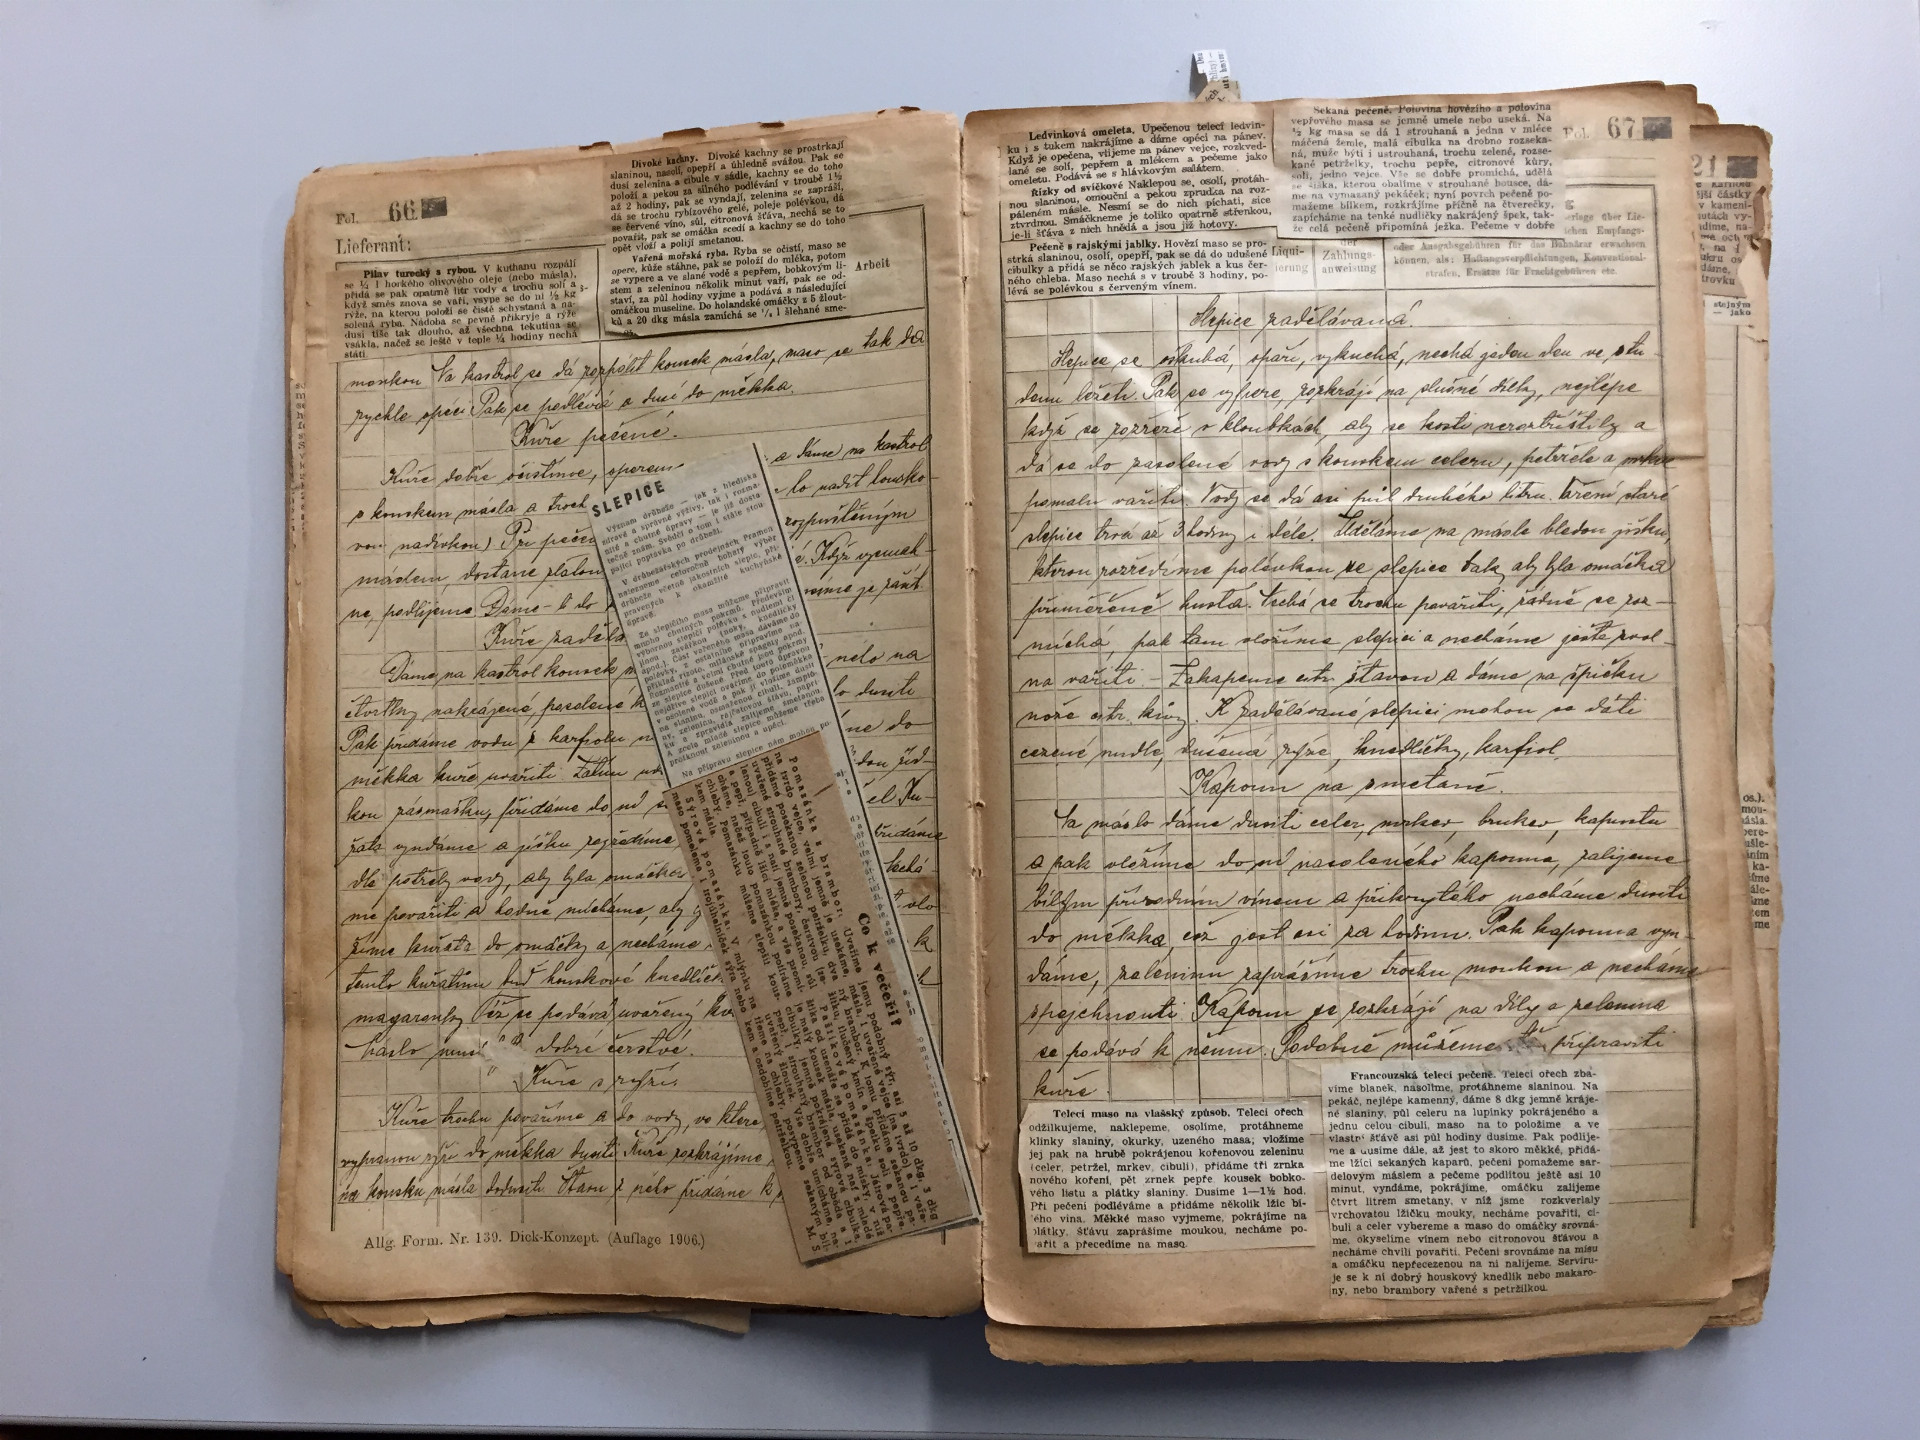 Fol. 66
Lieferant:
Pilav turecký s rybou. V kuthanu rozpálí
se ¼ l horkého olivového oleje (nebo másla),
přidá se pak opatrně litr vody a trochu soli a
když směs znova se vaří, vsype se do ní ½ kg
rýže, na kterou položí se čistě schystaná a na-
solená ryba. Nádoba se pevně přikryje a rýže
dusí tiše tak dlouho, až všechna tekutina se
vsákla, načež se ještě v teple ¼ hodiny nechá
státi.
Divoké kachny. Divoké kachny se prostrkají
slaninou, nasolí, opepří a úhledně svážou. Pak se
dusí zelenina a cibule v sádle, kachny se do toho
položí a pekou za silného podlévání v troubě 1½
až 2 hodiny, pak se vyndají, zelenina se zapráší,
dá se trochu rybízového gelé, poleje polévkou, dá
se červené víno, sůl, citronová šťáva, nechá se to
povařit, pak se omáčka scedí a kachny se do toho
opět vloží a polijí smetanou.
Vařená mořská ryba. Ryba se očistí, maso se
opere, kůže stáhne, pak se položí do mléka, potom
se vypere a ve slané vodě s pepřem, bobkovým li-
stem a zeleninou několik minut vaří, pak se od-
staví, za půl hodiny vyjme a podává s následující
omáčkou museline. Do holandské omáčky z 5 žlout-
ků a 20 dkg másla zamíchá se ¼ l šlehané sme-
Arbeit
moukou Na kastrol se dá rozpálit kousek másla, maso se tak dá
rychle opéci Pak se podlévá a dusí do měkka.
Kuře pečené.
Kuře dobře očistíme, a dáme na kastrol
s kouskem másla a
vou nadívkou) Při rozpuštěným
máslem dostane Když
ne, podlijeme. Dáme-li do
Kuře
Dáme na kastrol kousek
čtvrtky nakrájené, posolené dusiti
Pak přidáme vodu z karfiolu do
měkka kuře uvařiti Zatím
kou zásmažku, přidáme do ní
řata vyndáme a jíšku rozředíme, přidáme
dle potřeby vody, aby byla omáčka nechá-
me povařiti a hodně mícháme, aby
žíme kuřata do omáčky a necháme
těmto kuřatům buď houskové knedlíčk
magaronky Též se podává uvařený
Máslo musí býti dobré čerstvé.
Kuře s rýží
Kuře trochu povaříme a do vody, ve které
vypranou rýži do měkka dusiti Kuře rozkrájíme
na kousku másla dodusiti Šťávu z něho přidáme k
Allg. Form. Nr. 139. Dick-Konzept. (Auflage 1906.)
SLEPICE
Význam drůbeže — jak z hlediska
zdravé a správné výživy, tak i rozma-
nité a chutné úpravy — je již dosta-
tečně znám. Svědčí o tom i stále stou-
pající poptávka po drůbeži.
V drůbežářských prodejnách Pramen
nalezneme celoročně bohatý výběr
drůbeže včetně jakostních slepic, při-
pravených k okamžité kuchyňské
úpravě.
Ze slepičího masa můžeme připravit
mnoho chutných pokrmů. Především
výbornou slepičí polévku s nudlemi či
jinou zavářkou (noky, knedlíčky
apod.). Část vařeného masa dáváme do
polévky, z ostatního připravíme na-
příklad rizoto, milánské špagety apod.
Rozmanité a velmi chutné jsou pokrmy
ze slepice dušené. Před touto úpravou
A zcela mladé slepice můžeme třeba
protknout zeleninou a upéci.
Na přípravu slepice nám mohou po-
Co k večeři?
Pomazánka s brambor: Uvaříme
na tvrdo vejce, velmi jemně je usekáme,
přidáme posekanou zelenou petrželku, dva
uvařené strouhané brambory, čerstvou (ze-
lenou) cibuli i s natí jemně posekanou, sůl
a pepř, případně lžíci mléka, a vše promí-
cháme, načež touto pomazánkou potíráme
chleby. Pomazánku můžeme zlepšit kous-
kem másla.
Sýrová pomazánka: V mlýnku na
maso pomeleme 1 trojúhelníček sýra nebo
jemu podobný sýr, asi 5 až 10 dkg, 3 dkg
másla, 1 uvařené vejce (na tvrdo) a 1 vaře-
ný brambor. K tomu přidáme sekanou pa-
žitku, tlučený kmín a špetku soli a pepře.
Paštiková pomazánka: Játrová pa-
štika od uzenáře se přidá do misky, v níž
je malý kousek másla, usekaná nať z mladé
cibulky, jemně pokrájená syrová cibulka,
pepř, 1 strouhaný brambor od oběda a 1
uvařený žloutek. Vše dobře umícháme, na-
třeme na chleby, posypeme sekaným bíl-
kem a ozdobíme petrželkou. M. S.
Fol. 67
Ledvinková omeleta. Upečenou telecí ledvin-
ku i s tukem nakrájíme a dáme opéci na pánev.
Když je opečena, vlijeme na pánev vejce, rozkved-
laně se solí, pepřem a mlékem a pečeme jako
omeletu. Podává se s hlávkovým salátem.
Řízky od svíčkové Naklepou se, osolí, protáh-
nou slaninou, omouční a pekou zprudka na roz-
páleném másle. Nesmí se do nich píchati, sice
ztvrdnou. Smáčkneme je toliko opatrně střenkou,
je-li šťáva z nich hnědá a jsou již hotovy.
Pečeně s rajskými jablky. Hovězí maso se pro-
strká slaninou, osolí, opepří, pak se dá do udušené
cibulky a přidá se něco rajských jablek a kus čer-
ného chleba. Maso nechá s v troubě 3 hodiny, po-
lévá se polévkou s červeným vínem.
Sekaná pečeně. Polovina hovězího a polovina
vepřového masa se jemně umele nebo useká. Na
½ kg masa se dá 1 strouhaná a jedna v mléce
máčená žemle, malá cibulka na drobno rozseka-
ná, může býti i ustrouhaná, trochu zelené, rozse-
kané petrželky, trochu pepře, citronové kůry,
soli, jedno vejce. Vše se dobře promíchá, udělá
se šiška, kterou obalíme v strouhané housce, dá-
me na vymazaný pekáček; nyní povrch pečeně po-
mažeme bílkem, rozkrájíme příčně na čtverečky,
zapícháme na tenké nudličky nakrájený špek, tak-
že celá pečeně připomíná ježka. Pečeme v dobře
Liqui-
dierung
der
Zahlungs-
anweisung
oder Ausgabsgebühren für das Bahnärar erwachsen
können, als: Haftungsverpflichtungen, Konventional-
strafen, Ersätze für Frachtgebühren etc.
Slepice zadělávaná.
Slepice se oškubá, spaří, vykuchá, nechá jeden den ve stu-
denu ležeti. Pak se vypere, rozkrájí na slušné dílky, nejlépe
když se rozřeže v kloubkách, aby se kosti neroztříštily a
dá se do zasolené vody s kouskem celeru, petržele a mrkve
pomalu vařiti. Vody se dá asi půl druhého litru. Vaření staré
slepice trvá až 3 hodiny i déle. Uděláme na másle bledou jíšku,
kterou rozředíme polévkou ze slepice tak, aby byla omáčka
přiměřeně hustá. Nechá se trochu povařiti, řádně se roz-
míchá, pak tam vložíme slepici a necháme ještě zvol-
na vařiti. – Zakapeme citr. šťávou a dáme na špičku
nože citr. kůry. K zadělávané slepici mohou se dáti
cezené nudle, dušená rýže, knedlíčky, karfiol.
Kapoun na smetaně.
Na máslo dáme dusiti celer, mrkev, brukev, kapustu
a pak vložíme do ní nasoleného kapouna, zalijeme
bílým přírodním vínem a přikrytého necháme dusiti
do měkka, což jest asi za hodinu. Pak kapouna vyn-
dáme, zeleninu zaprášíme trochu moukou a necháme
zpejchnouti. Kapoun se rozkrájí na díly a zelenina
se podává k němu. Podobně můžeme připraviti
kuře.
Telecí maso na vlašský způsob. Telecí ořech
odžilkujeme, naklepeme, osolíme, protáhneme
klínky slaniny, okurky, uzeného masa; vložíme
jej pak na hrubě pokrájenou kořenovou zeleninu
(celer, petržel, mrkev, cibuli), přidáme tři zrnka
nového koření, pět zrnek pepře, kousek bobko-
vého listu a plátky slaniny. Dusíme 1—1½ hod.
Při pečení podléváme a přidáme několik lžic bí-
lého vína. Měkké maso vyjmeme, pokrájíme na
plátky, šťávu zaprášíme moukou, necháme po-
vařit a přecedíme na maso.
Francouzská telecí pečeně. Telecí ořech zba-
víme blanek, nasolíme, protáhneme slaninou. Na
pekáč, nejlépe kamenný, dáme 8 dkg jemně kráje-
né slaniny, půl celeru na lupínky pokrájeného a
jednu celou cibuli, maso na to položíme a ve
vlastní šťávě asi půl hodiny dusíme. Pak podlije-
me a dusíme dále, až jest to skoro měkké, přidá-
me lžíci sekaných kaparů, pečeni pomažeme sar-
delovým máslem a pečeme podlitou ještě asi 10
minut, vyndáme, pokrájíme, omáčku zalijeme
čtvrt litrem smetany, v níž jsme rozkverlaly
vrchovatou lžičku mouky, necháme povařiti, ci-
buli a celer vybereme a maso do omáčky srovná-
me, okyselíme vínem nebo citronovou šťávou a
necháme chvíli povařiti. Pečeni srovnáme na mísu
a omáčku nepřecezenou na ni nalijeme. Servíru-
je se k ní dobrý houskový knedlík nebo makaro-
ny, nebo brambory vařené s petržilkou.
21